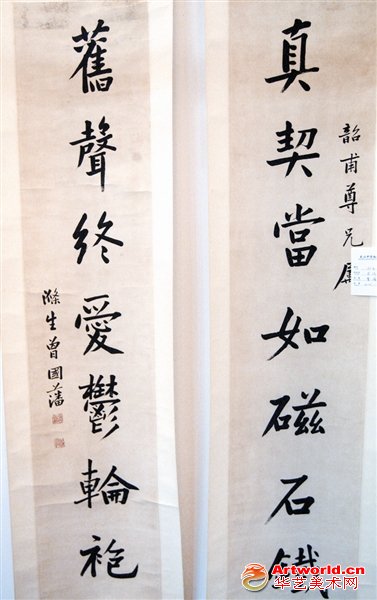 真契當如磁石鐵
韶甫尊兄屬
舊聲終愛鬱輪袍
滌生曾國藩
Artworld.cn
华艺美术网